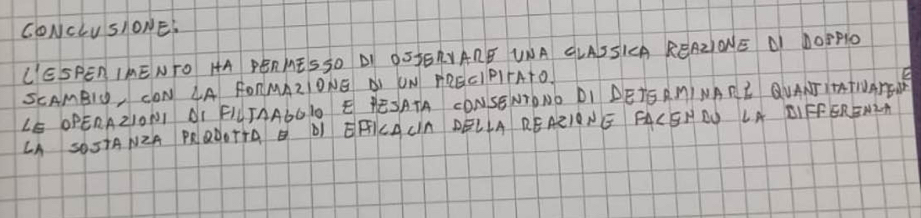 CONCLUSIONE:
L'ESPERIMENTO HA PERMESSO DI OSSERVARE UNA CLASSICA REAZIONE DI DOPPIO
SCAMBIO, CON LA FORMAZIONE DI UN PRECIPITATO.
LE OPERAZIONI DI FILTRAGGIO E PESATA CONSENTONO DI DETERMINARE QUANTITATIVAMENTE
LA SOSTANZA PRODOTTA E DI EFFICACIA DELLA REAZIONE FACENDO LA DIFFERENZA